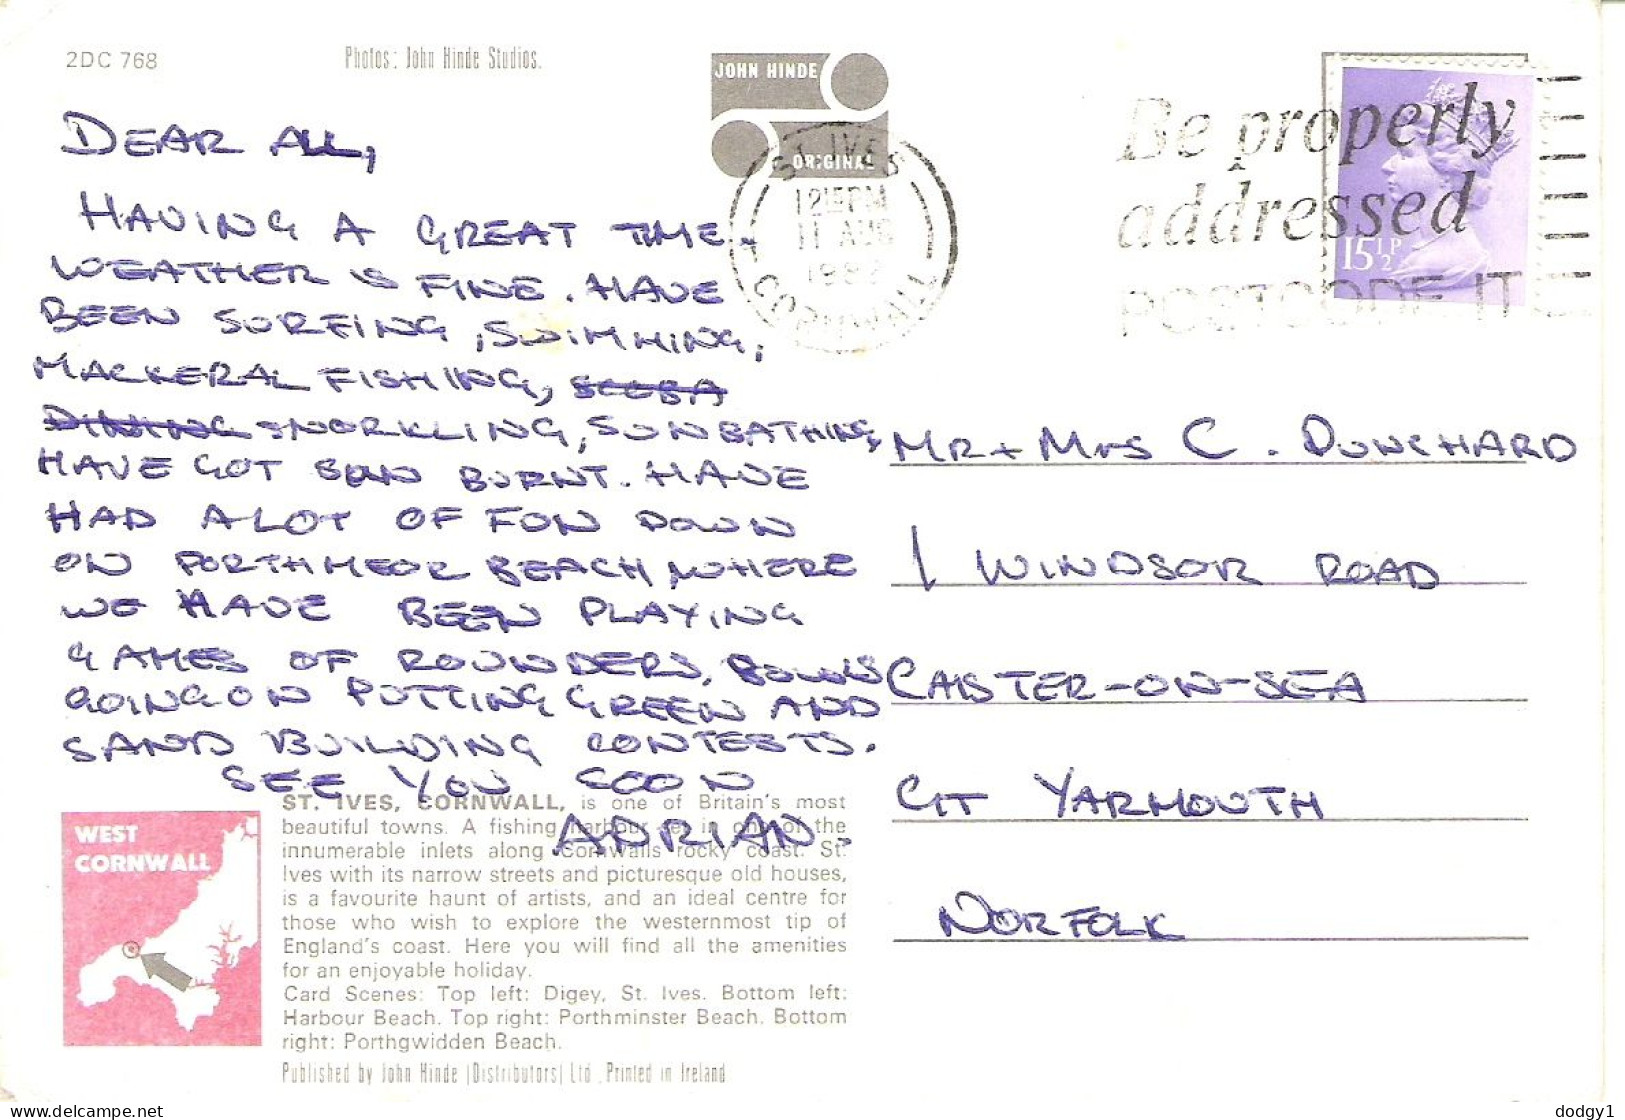 2DC 768
Photos: John Hinde Studios.
JOHN HINDE
ORIGINAL
ST. IVES
12 15 PM
11 AUG
CORNWALL
Be properly
addressed
POSTCODE IT
15½P
DEAR ALL,
HAVING A GREAT TIME.
WEATHER IS FINE. HAVE
BEEN SURFING, SWIMMING,
MACKERAL FISHING, SCUBA
DIVING SNORKLING, SUNBATHING,
HAVE GOT SUN BURNT. HAVE
HAD A LOT OF FUN DOWN
ON PORTHMEOR BEACH, WHERE
WE HAVE BEEN PLAYING
GAMES OF ROUNDERS, BOWLS
GOING ON PUTTING GREEN AND
SAND BUILDING CONTESTS.
SEE YOU SOON
ADRIAN.
MR + MRS C. DUNCHARD
1 WINDSOR ROAD
CAISTER-ON-SEA
GT YARMOUTH
NORFOLK
WEST
CORNWALL
ST. IVES, CORNWALL, is one of Britain's most
beautiful towns. A fishing harbour set in one of the
innumerable inlets along Cornwalls rocky coast. St.
Ives with its narrow streets and picturesque old houses,
is a favourite haunt of artists, and an ideal centre for
those who wish to explore the westernmost tip of
England's coast. Here you will find all the amenities
for an enjoyable holiday.
Card Scenes: Top left: Digey, St. Ives. Bottom left:
Harbour Beach. Top right: Porthminster Beach. Bottom
right: Porthgwidden Beach.
Published by John Hinde (Distributors) Ltd. Printed in Ireland
delcampe.net
dodgy1